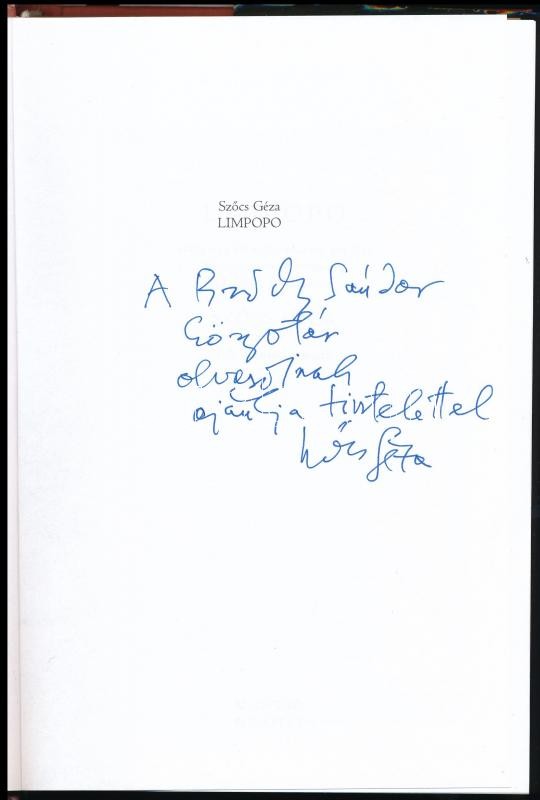 Szőcs Géza
LIMPOPO
A Bródy Sándor
Könyvtár
olvasóinak
ajánlja tisztelettel
Szőcs Géza